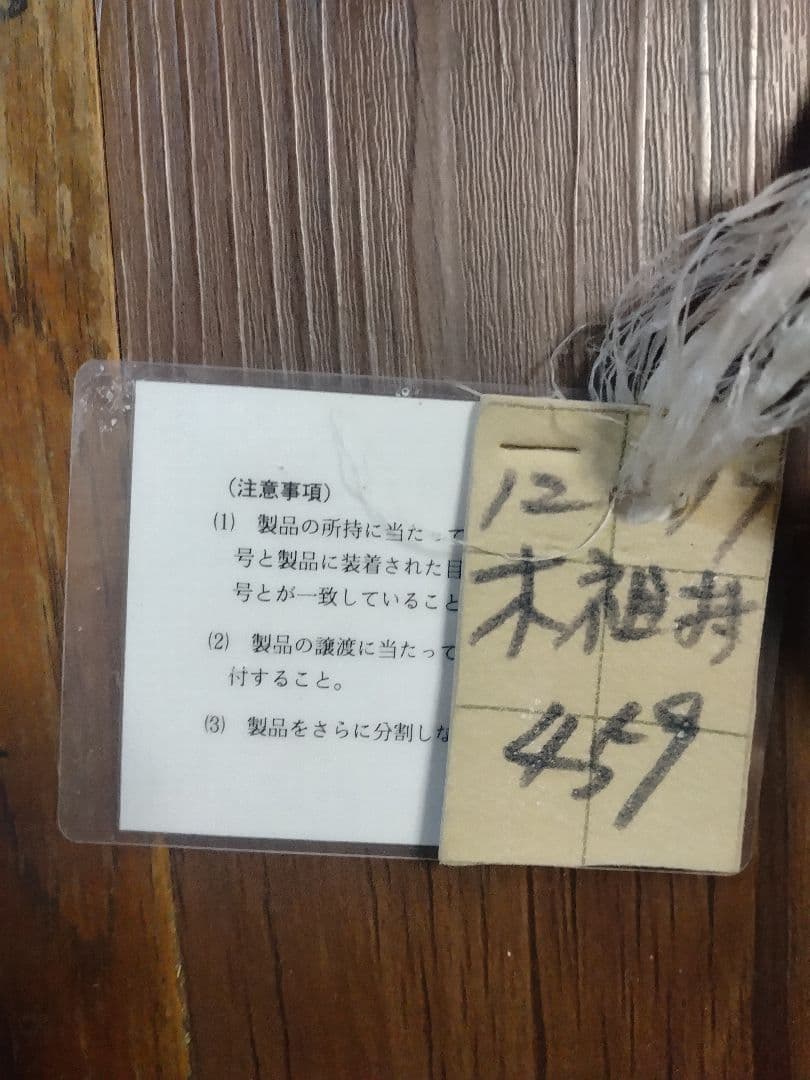 (注意事項)
(1) 製品の所持に当たって
号と製品に装着された目
号とが一致していること
(2) 製品の譲渡に当たって
付すること。
(3) 製品をさらに分割しな
12 17
木祖村
459